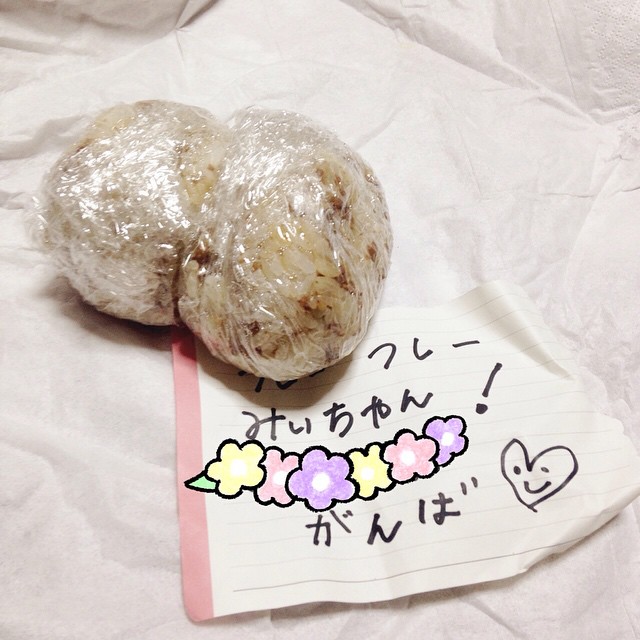 フレー
みぃちゃん!
がんば